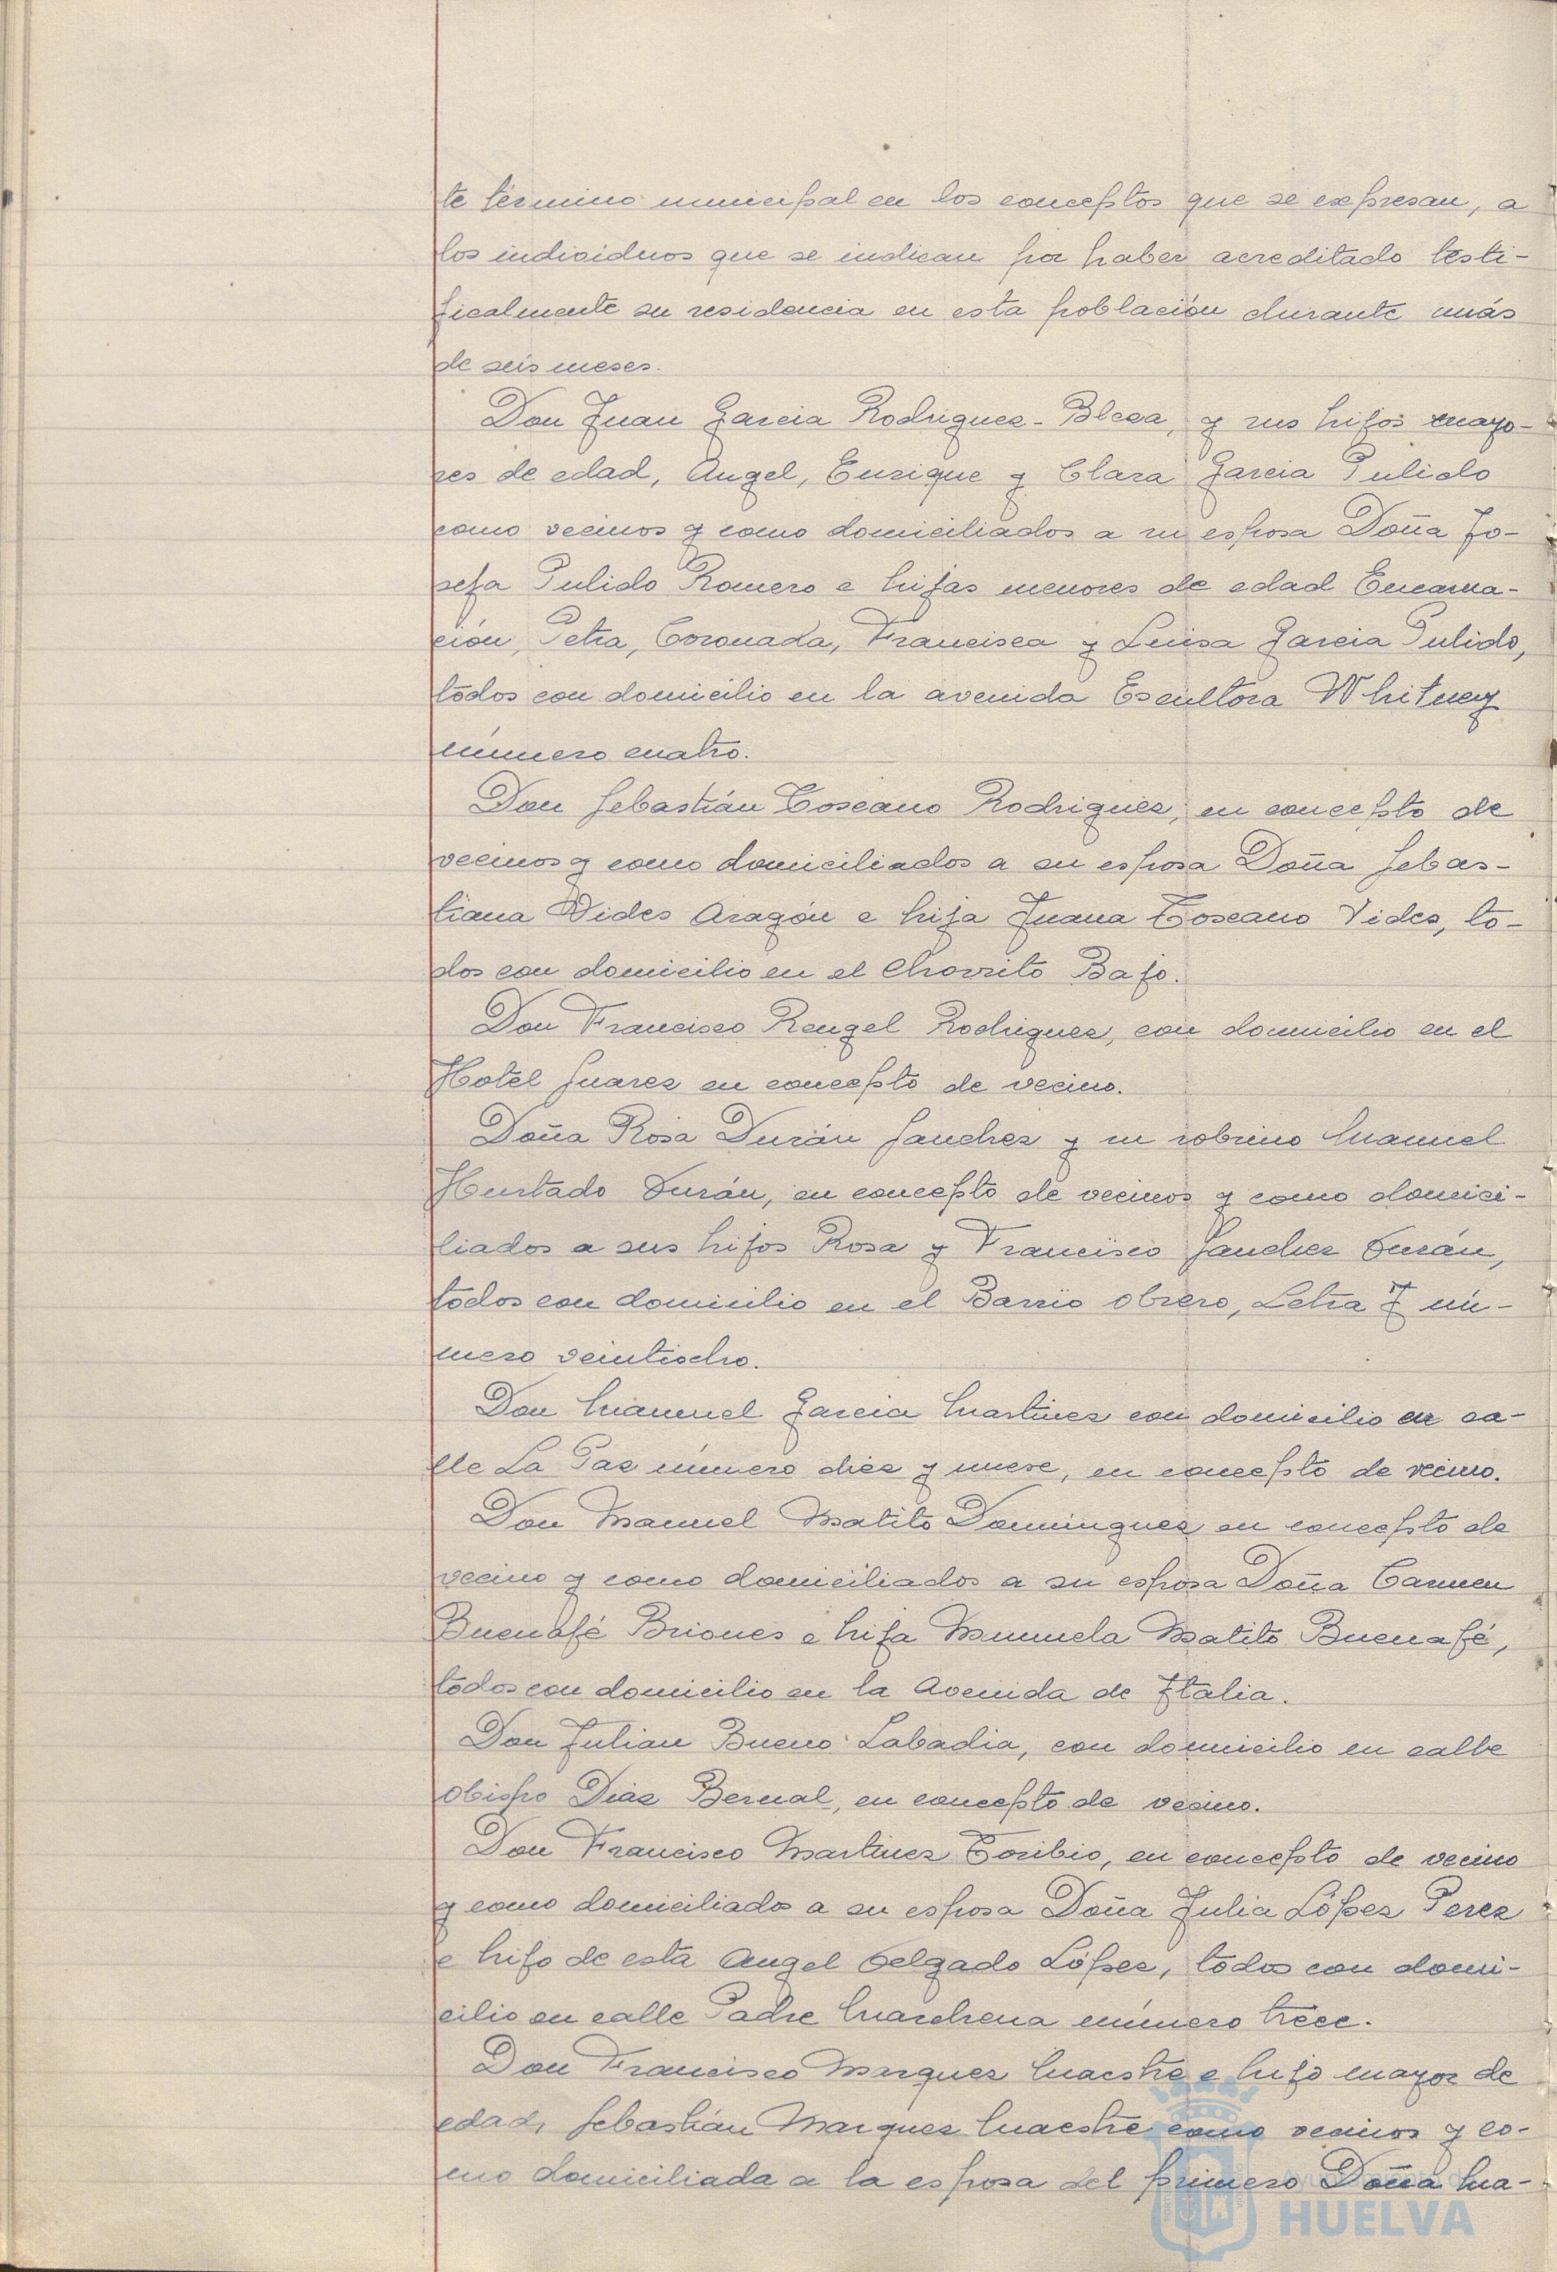 te término municipal en los conceptos que se expresan, a
los individuos que se indican por haber acreditado testi-
ficalmente su residencia en esta población durante más
de seis meses.
Don Juan Garcia Rodriguez-Blesa, y sus hijos mayo-
res de edad, Angel, Enrique y Clara Garcia Pulido
como vecinos y como domiciliados a su esposa Doña Jo-
sefa Pulido Romero e hijas menores de edad Encarna-
ción, Petra, Coronada, Francisca y Luisa Garcia Pulido,
todos con domicilio en la avenida Escultora Whitney
número cuatro.
Don Sebastián Toscano Rodriguez, en concepto de
vecinos y como domiciliados a su esposa Doña Sebas-
tiana Vides Aragón e hija Juana Toscano Vides, to-
dos con domicilio en el Chorrito Bajo.
Don Francisco Rengel Rodriguez, con domicilio en el
Hotel Suarez en concepto de vecino.
Doña Rosa Durán Sanchez y su sobrino Manuel
Hurtado Durán, en concepto de vecinos y como domici-
liados a sus hijos Rosa y Francisco Sanchez Durán,
todos con domicilio en el Barrio obrero, Letra J nú-
mero veintiocho.
Don Manuel Garcia Martinez con domicilio en ca-
lle La Paz número diez y nueve, en concepto de vecino.
Don Manuel Matito Dominguez en concepto de
vecino y como domiciliados a su esposa Doña Carmen
Buenafé Briones e hija Manuela Matito Buenafé,
todos con domicilio en la Avenida de Italia.
Don Julian Bueno Labadia, con domicilio en calle
obispo Diaz Bernal, en concepto de vecino.
Don Francisco Martinez Toribio, en concepto de vecino
y como domiciliado a su esposa Doña Julia López Perez
e hijo de esta Angel Delgado López, todos con domi-
cilio en calle Padre Marchena número trece.
Don Francisco Marquez Maestre e hijo mayor de
edad, Sebastián Marquez Maestre como vecinos y co-
mo domiciliada a la esposa del primero Doña Ma-
Ayuntamiento de
HUELVA